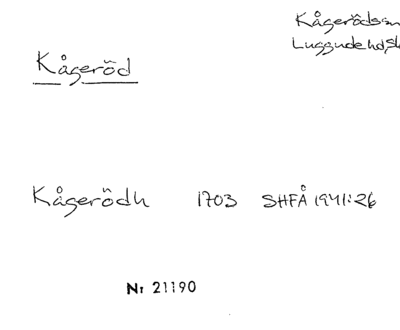 Kågeröds
Luggude hd, Sk
Kågeröd
Kågerödh 1703 SHFÅ 1941:26
Nr 21190